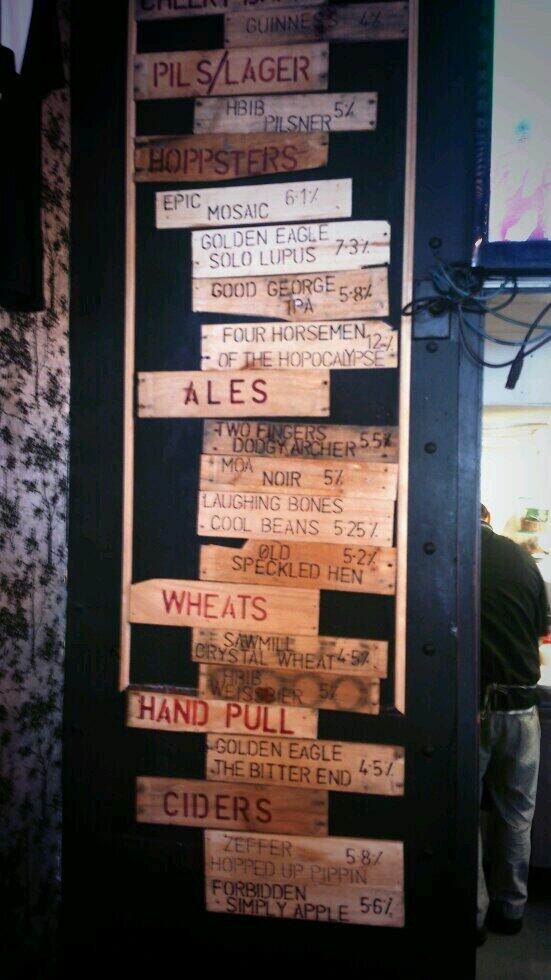 GUINNESS 4%
PILS/LAGER
HBIB 5%
PILSNER
HOPPSTERS
EPIC 6·1%
MOSAIC
GOLDEN EAGLE
SOLO LUPUS 7·3%
GOOD GEORGE 5·8%
IPA
FOUR HORSEMEN 12%
OF THE HOPOCALYPSE
ALES
TWO FINGERS 5·5%
DODGY ARCHER
MOA
NOIR 5%
LAUGHING BONES
COOL BEANS 5·25%
OLD 5·2%
SPECKLED HEN
WHEATS
SAWMILL
CRYSTAL WHEAT 4·5%
HBIB
WEISSBIER 5%
HAND PULL
GOLDEN EAGLE
THE BITTER END 4·5%
CIDERS
ZEFFER 5·8%
HOPPED UP PIPPIN
FORBIDDEN
SIMPLY APPLE 5·6%